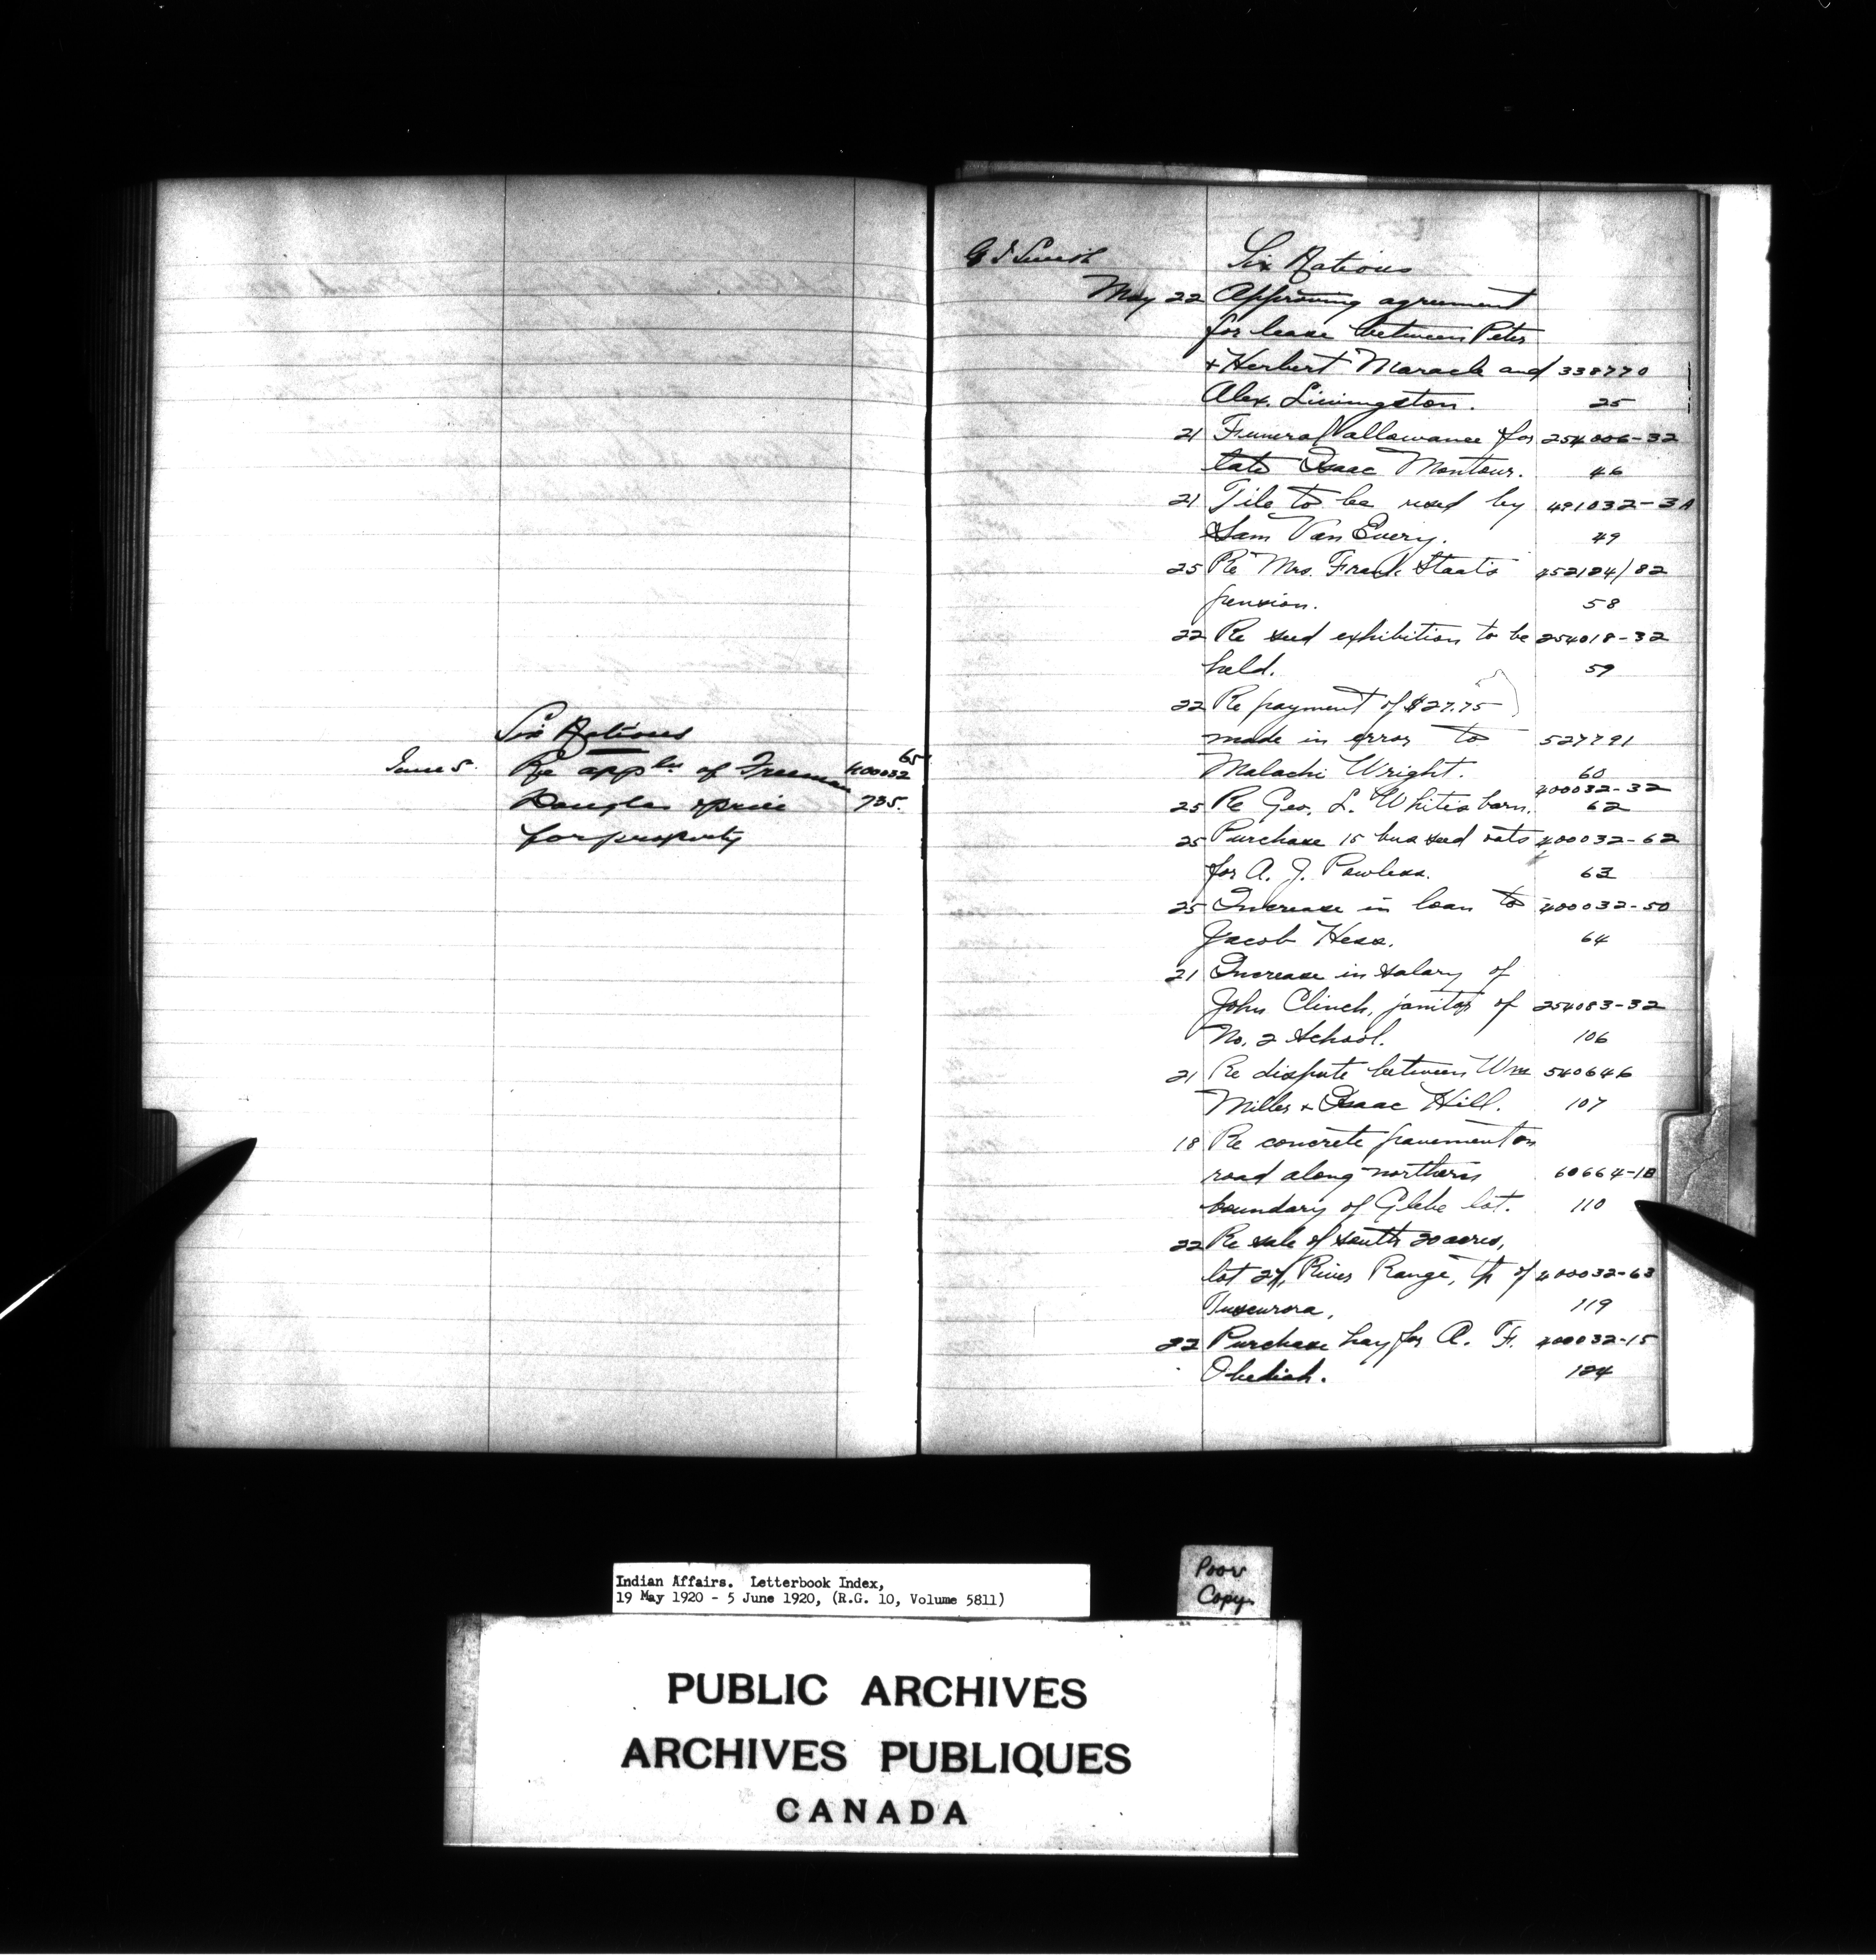 Six Nations
65
June 5. Re appln of Freeman 400032
Douglas & price 735.
for property
G J Smith Six Nations
May 22 Approving agreement
for lease between Peter
+ Herbert Maracle and 338770
Alex. Livingston. 25
21 Funeral allowance for 254006-32
late Isaac Montour. 46
21 Tile to be used by 491032-3A
Sam Van Every. 49
25 Re Mrs. Frank Staats 452124/82
pension. 58
22 Re seed exhibition to be 254018-32
held. 59
22 Re payment of $27.75
made in error to 527791
Malachi Wright. 60
400032-32
25 Re Geo. L. White's barn. 62
25 Purchase 15 bus seed oats 400032-62
for A. J. Powless. 63
25 Increase in loan to 400032-50
Jacob Hess. 64
21 Increase in salary of
John Clinch, janitor of 254083-32
No. 2 School. 106
21 Re dispute between Wm 540646
Miller + Isaac Hill. 107
18 Re concrete pavement on
road along northern 60664-1B
boundary of Glebe lot. 110
22 Re sale of south 20 acres,
lot 27, River Range, Tp of 400032-63
Tuscurora, 119
22 Purchase hay for A. F. 400032-15
Obediah. 124
Indian Affairs. Letterbook Index,
19 May 1920 - 5 June 1920, (R.G. 10, Volume 5811)
Poor
Copy.
PUBLIC ARCHIVES
ARCHIVES PUBLIQUES
CANADA